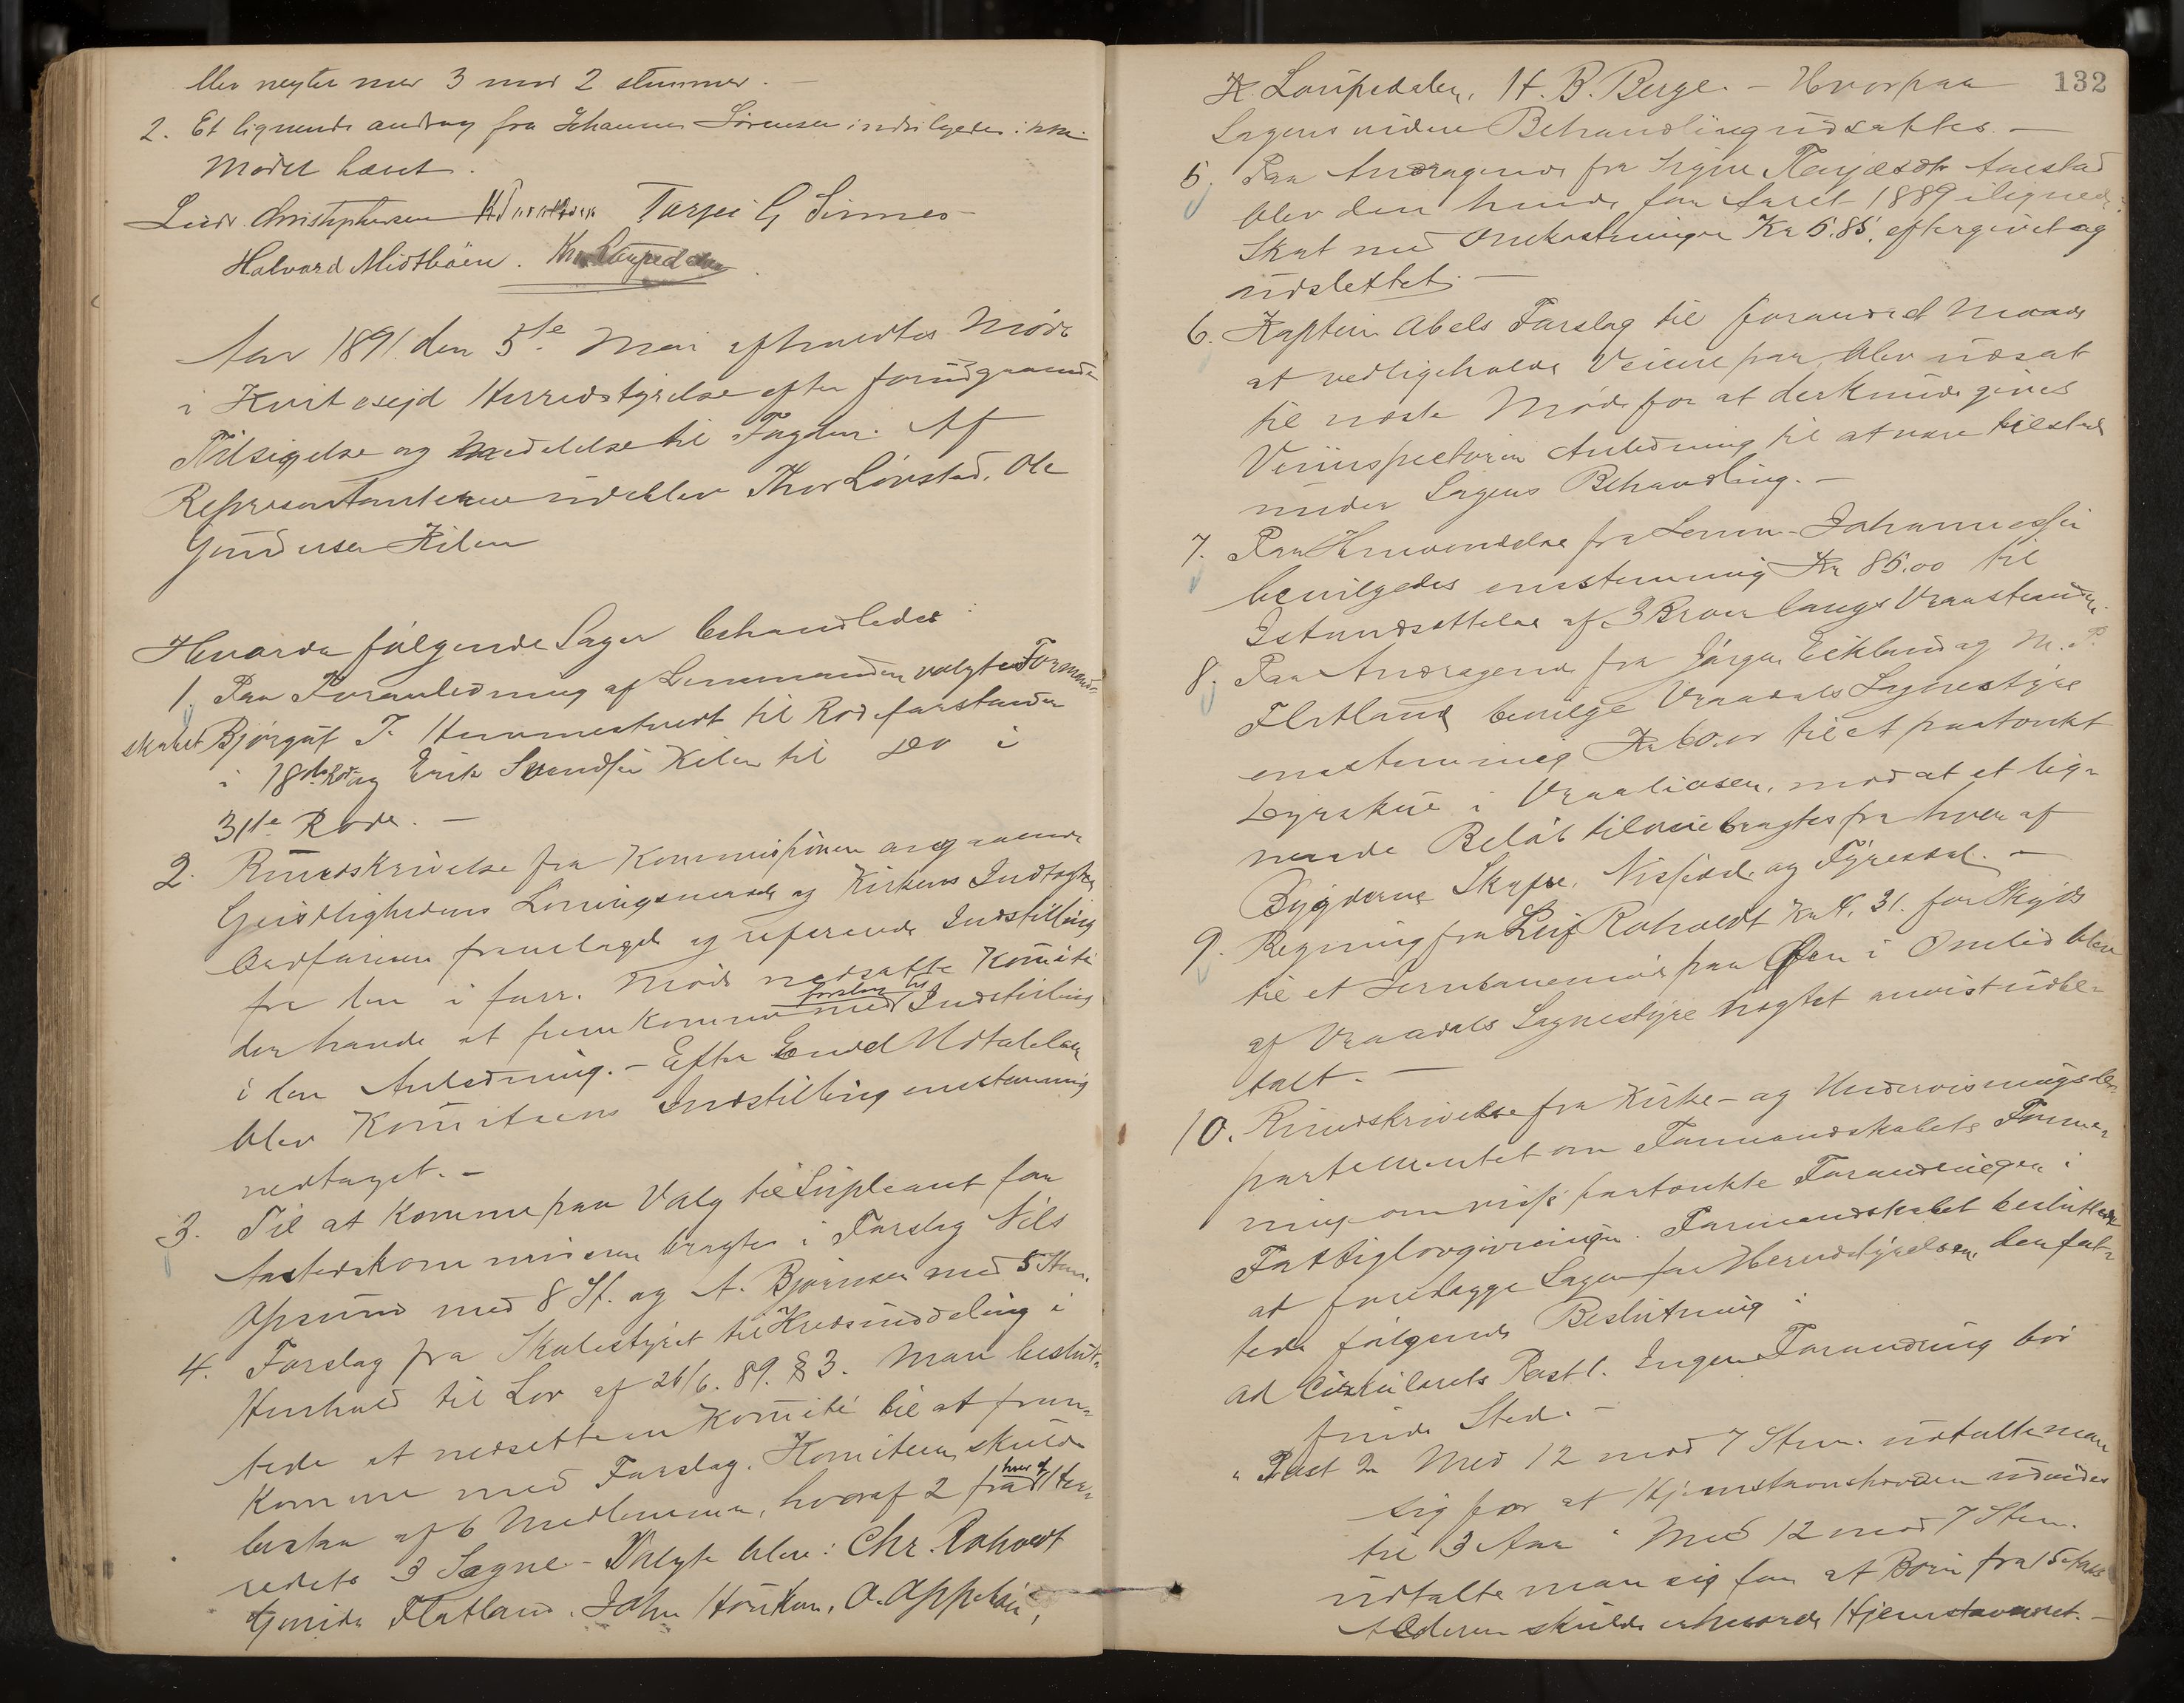 blev negtet med 3 mod 2 stemmer. —
2. Et lignende andrag fra Johannes Sørensen
Mødet hævet.
Ludv. Christophersen Tarjei G Sinnes
Halvord Midtbøen. Kr. Laupedalen
Aar 1891 den 5te Mai afholdtes Møde
i Kviteseid Herredstyrelse efter forudgaaende
Tilsigelse og Meddelelse til Fogden. Af
Repræsentanterne udeblev Thor Løvstad, Ole
Gundersen Kilen
Hvorda følgende Sager behandledes:
1. Paa Foranledning af Lensmanden valgtes Formand-
skabet Bjørgulf T. Hemmestveit til Rodeforstander
i 18de Rode og Erik Svendsen Kilen til do i
31te Rode. —
2. Rundskrivelse fra Kommissionen angaaende
Geistlighedens Lønningsmaade og Kirkens Indtægter
Ordføreren fremlagde og refererede Indstilling
fra den i forr. Møde nedsatte Komite
der havde at fremkomme med forslag til Indstilling
i den Anledning. — Efter Endel Udtalelser
blev Komiteens Indstilling enstemmig
vedtaget. —
3. Til at komme paa Valg til Supleant for
Aastedskommissionen bragtes i Forslag Nils
Opsund med 8 St. og A. Bjørnsen med 5 Stem.
4. Forslag fra Skolestyret til Kredsinddeling i
Henhold til Lov af 26/6. 89. § 3. Man beslut-
tede at nedsætte en Komite til at frem-
komme med Forslag. Komiteen skulde
bestaa af 6 Medlemmer, hvoraf 2 fra hver af Her-
redets 3 Sogne — Valgte blev: Chr. Roholdt
Gunder Flatland, John Haukom, O. Oppebøen,
132
K. Laupedalen, H. B. Berge. — Hvorpaa
Sagens videre Behandling udsattes. —
5. Paa Andragende fra Signe Tarjesdtr Aaestad
blev den hende for Aaret 1889 ilignede
Skat med Omkostninger Kr 5.85. eftergivet og
udslettet. —
6. Kaptein Abels Forslag til forandret Maade
at vedligeholde Veiene paa, blev udsat
til næste Møde for at der kunde gives
Veiinspectøren Anledning til at være tilstede
under Sagens Behandling. —
7. Paa Henvendelse fra Lensm. Johannessen
bevilgedes enstemmig Kr 85.00 til
Istandsættelse af 3 Broer langs Vraastranden.
8. Paa Andragende fra Jørgen Eikland og M. P.
Flatland bevilge Vraadals Sognestyre
enstemmig Kr 60.00 til et paatænkt
i Vraaliosen, mod at et lig-
nende Beløb tilveiebragtes fra hver af
Bygderne Skafse, Nissedal og Fyresdal. —
9. Regning fra Leif Roholdt Kr 4.31. for Skyds
til et Jernbanemøde paa Øen i Omlid blev
af Vraadals Sognestyre negtet anvist udbe-
talt. —
10. Rundskrivelse fra Kirke- og Undervisningsde-
partementet om Formandskabets Forme-
ning om visse paatænkte Forandringer i
Fattiglovgivningen. Formandskabet besluttede
at forelægge Sagen for Herredstyrelsen, der fat-
tede følgende Beslutning:
ad Cirkulærets Post 1. Ingen Forandring bør
finde Sted. —
" Post 2. Med 12 mod 7 Stem. udtalte man
sig for at Hjemstavnstiden udvides
til 3 Aar. Med 12 mod 7 Stem.
udtalte man sig for at Børn fra 15 Aars
Alderen skulde erhverve Hjemstavnsret. —